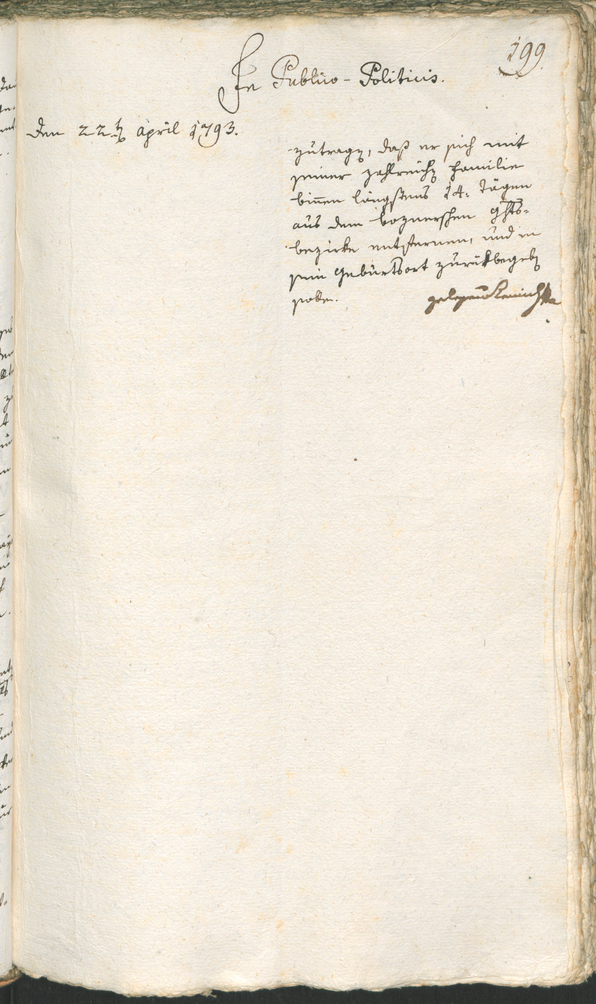 199.
In Publico-Politicis.
Den 22t April 1793.
zutragen, daß er sich mit
seiner zahlreichen Familie
binnen längstens 14. Tägen
aus dem boznerschen Ghts-
bezirke entfernen, und in
sein Geburtsort zurükbegeben
solle.